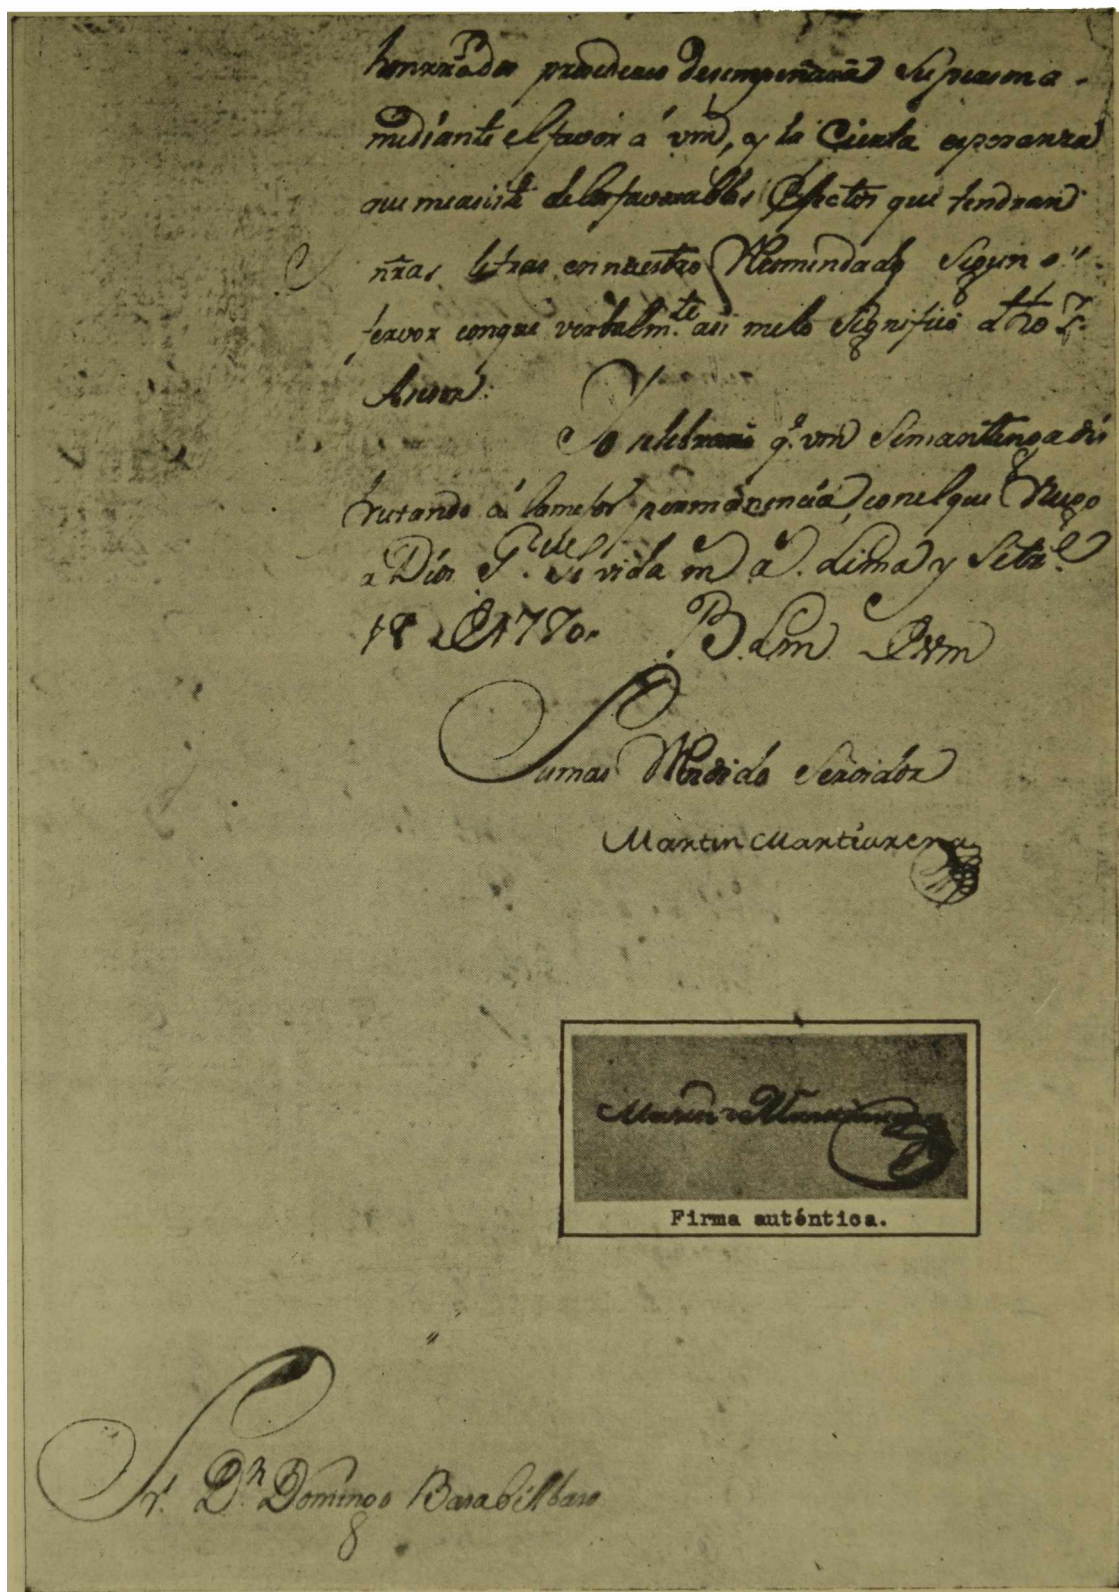 honrrados procederes desempeñará su persona.
mediante el favor á vmd, y la Cierta esperanza
que me asiste de los favorables efectos que tendran
ñras letras en nuestro Recomendado Segun o"
fervor conque verbalm.te asi me lo Significó
Yo celebraré q.e vmd Se mantenga dis
frutando á la mejor permanencia, con el que Ruego
a Dios G.de Su vida m a. Lima y Setr.e
18 de 1780.
B. L. m. De vm
Su mas Rendido Servidor
Martin Martiarena
Firma auténtica.
Sr. Dn. Domingo Basabilbaso